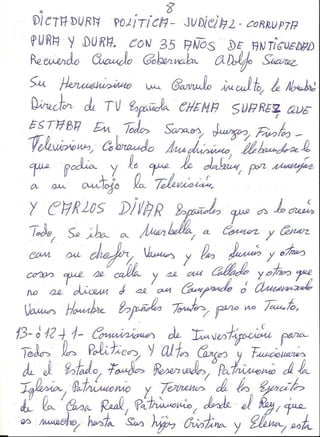 8
DICTADURA POLITICA- JUDICIAL- CORRUPTA
PURA Y DURA. CON 35 AÑOS DE ANTIGUEDAD
Recuerdo Cuando Gobernaba ADolfo Suarez
Su Hermanisimo un Garrulo inculto, le Nombró
Director de TV Española CHEMA SUAREZ QUE
ESTABA En Todos Saraos, Juergas, Fiestas -
Televisiones, Cobrando Muchisimo, llebandose lo
que podia y lo que le daban, por manejar
a su antojo la Televisión.
Y CARLOS DIVAR Españoles que os lo creeis
Todo, Se iba a Marbella, a Comer y Cenar
con su chofer, Vamos y las Lunis y otras
cosas que se calla y se an Callado y otras que
no se dicen ó se an Comprado ó Amenazado
Vamos Hombre Españoles Tontos, pero no Tanto.
13- ó 12 + 1- Comisiones de Investigación para
Todos los Politicos, Y Altos Cargos y Funcionarios
de el Estado, Fondos Reservados, Patrimonio de la
Iglesia, Patrimonio y Terrenos de los Egercitos
de la Casa Real, Patrimonio, desde el Rey, que
es mucho, hasta Sus hijas Cristina y Elena, esta